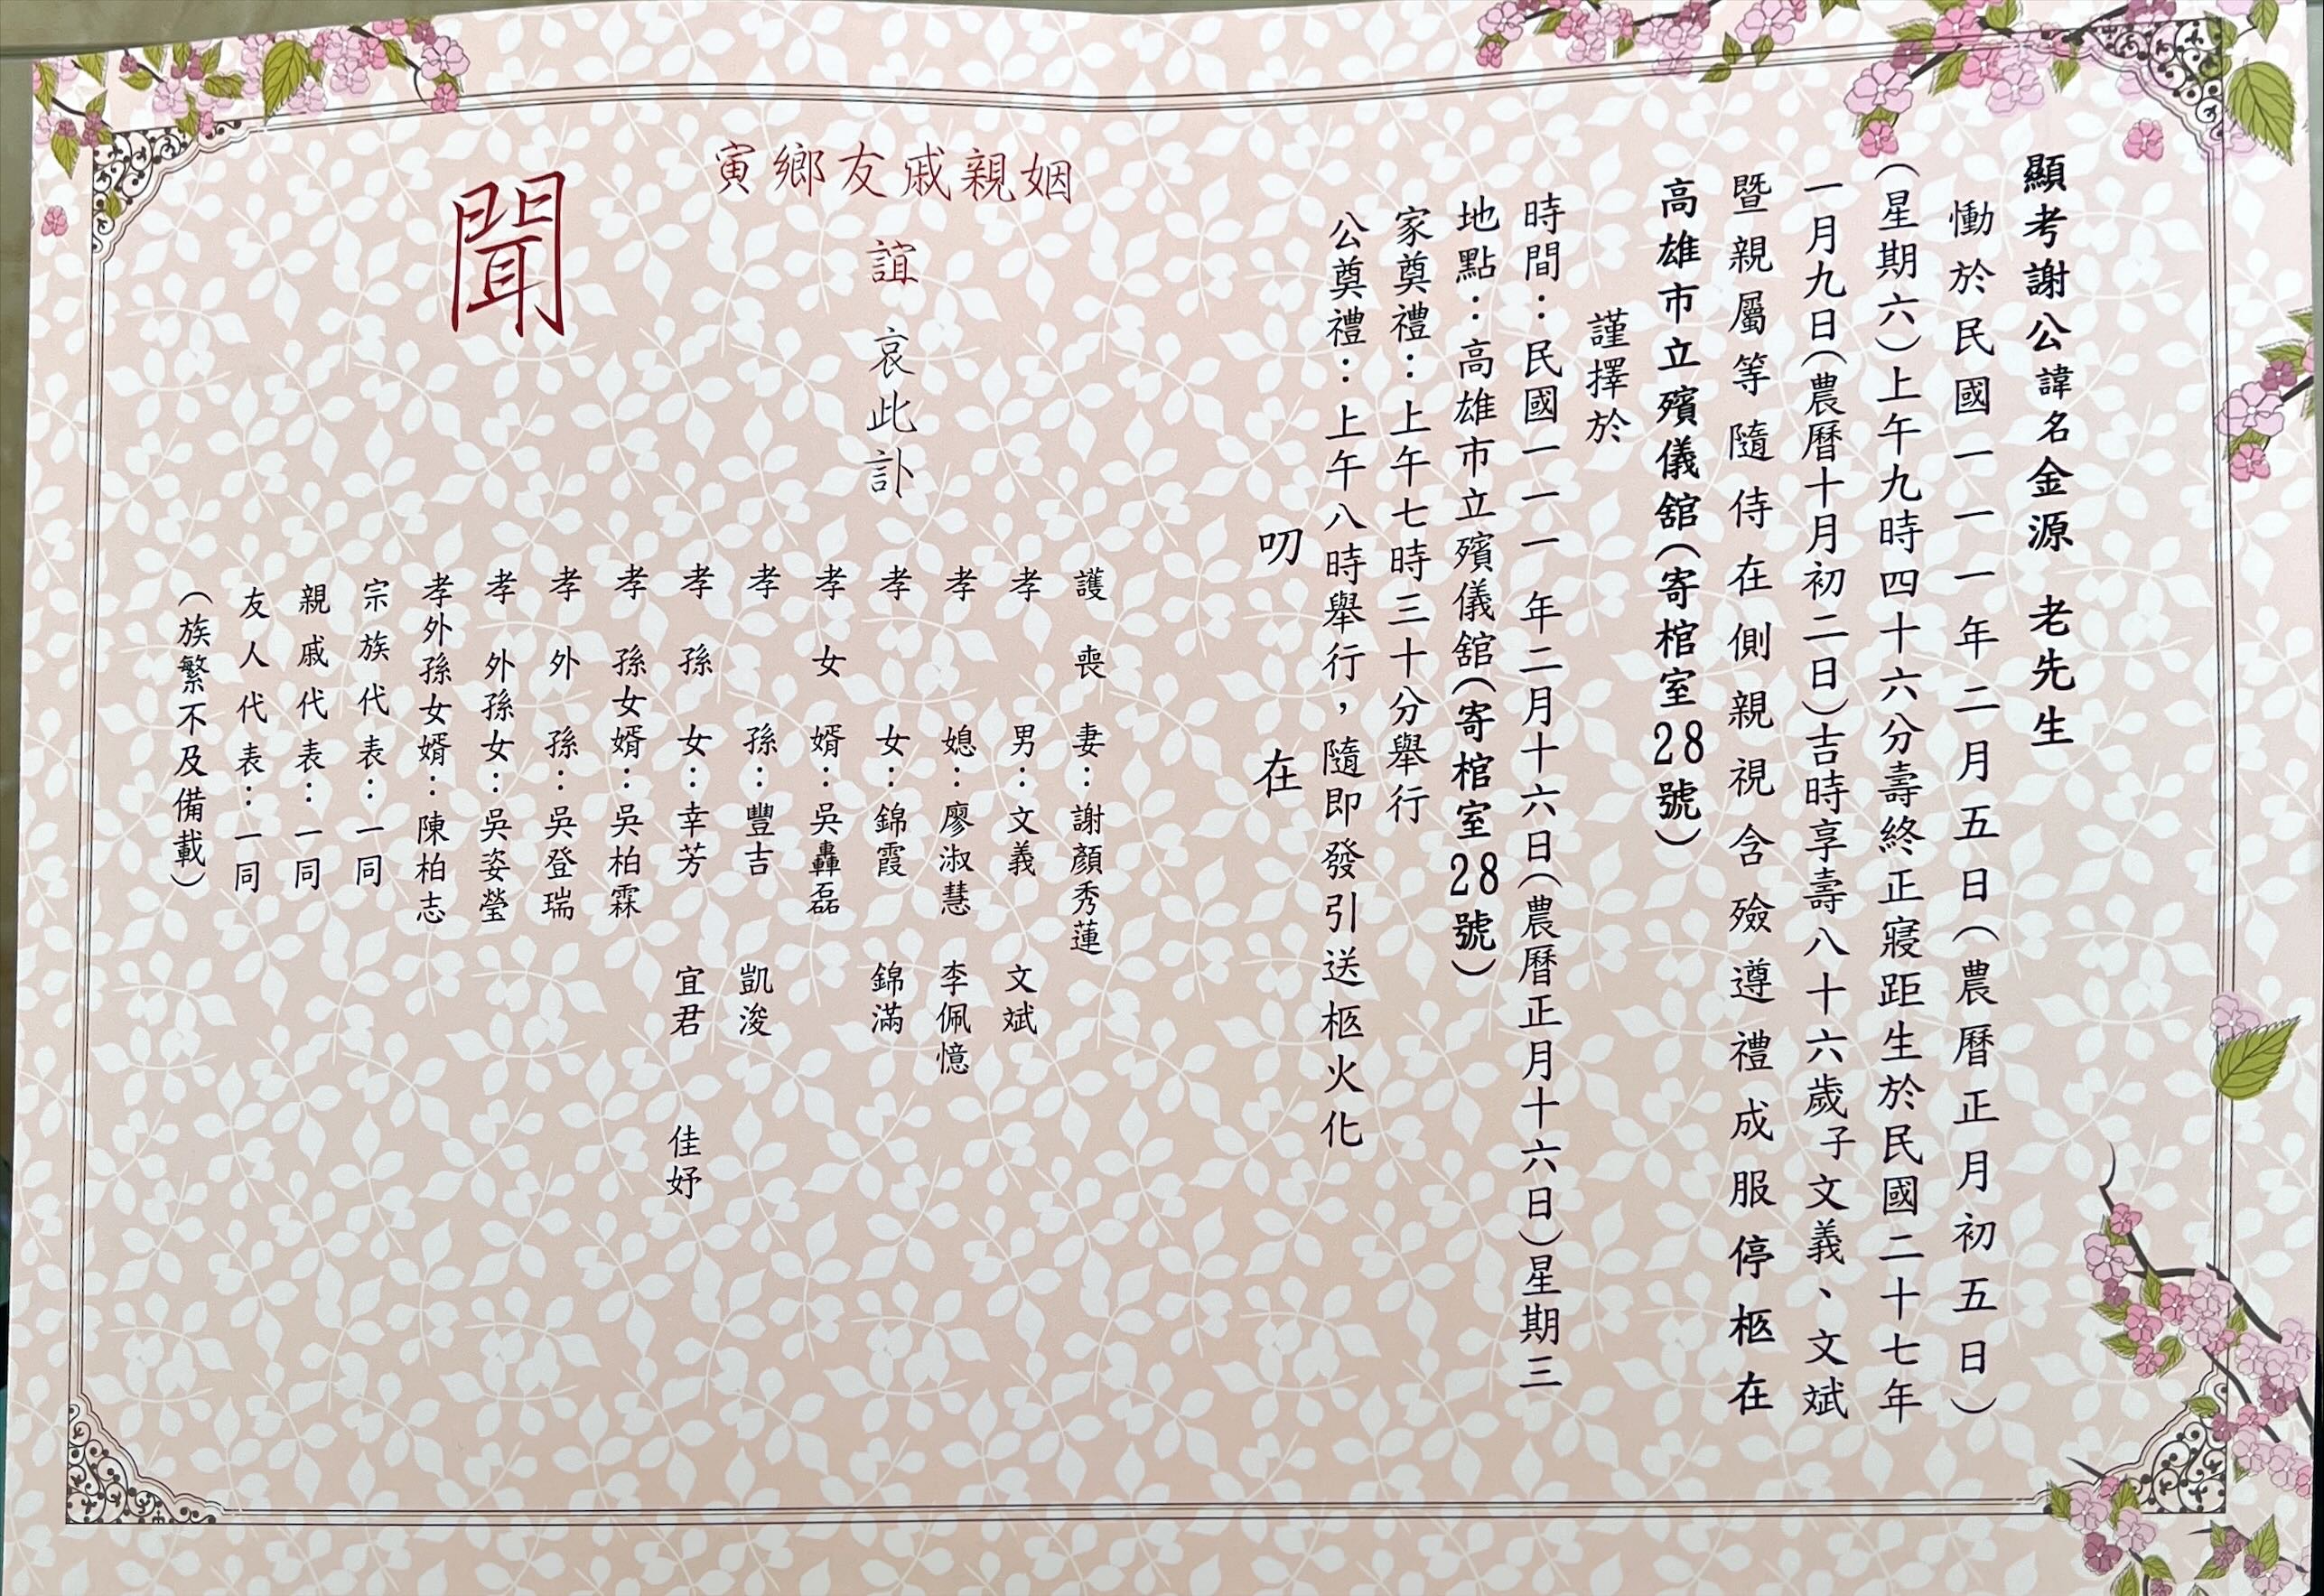 顯考謝公諱名金源 老先生
慟於民國一一一年二月五日(農曆正月初五日)
(星期六)上午九時四十六分壽終正寢距生於民國二十七年
一月九日(農曆十月初二日)吉時享壽八十六歲子文義、文斌
暨親屬等隨侍在側親視含殮遵禮成服停柩在
高雄市立殯儀舘(寄棺室28號)
謹擇於
時間：民國一一一年二月十六日(農曆正月十六日)星期三
地點：高雄市立殯儀舘(寄棺室28號)
家奠禮：上午七時三十分舉行
公奠禮：上午八時舉行，隨即發引送柩火化
叨 在
姻親戚友鄉寅
誼 哀此訃
聞
護喪妻：謝顏秀蓮
孝男：文義 文斌
孝媳：廖淑慧 李佩憶
孝女：錦霞 錦滿
孝女婿：吳轟磊
孝孫：豐吉 凱浚
孝孫女：幸芳 宜君 佳妤
孝孫女婿：吳柏霖
孝外孫：吳登瑞
孝外孫女：吳姿瑩
孝外孫女婿：陳柏志
宗族代表：一同
親戚代表：一同
友人代表：一同
(族繁不及備載)